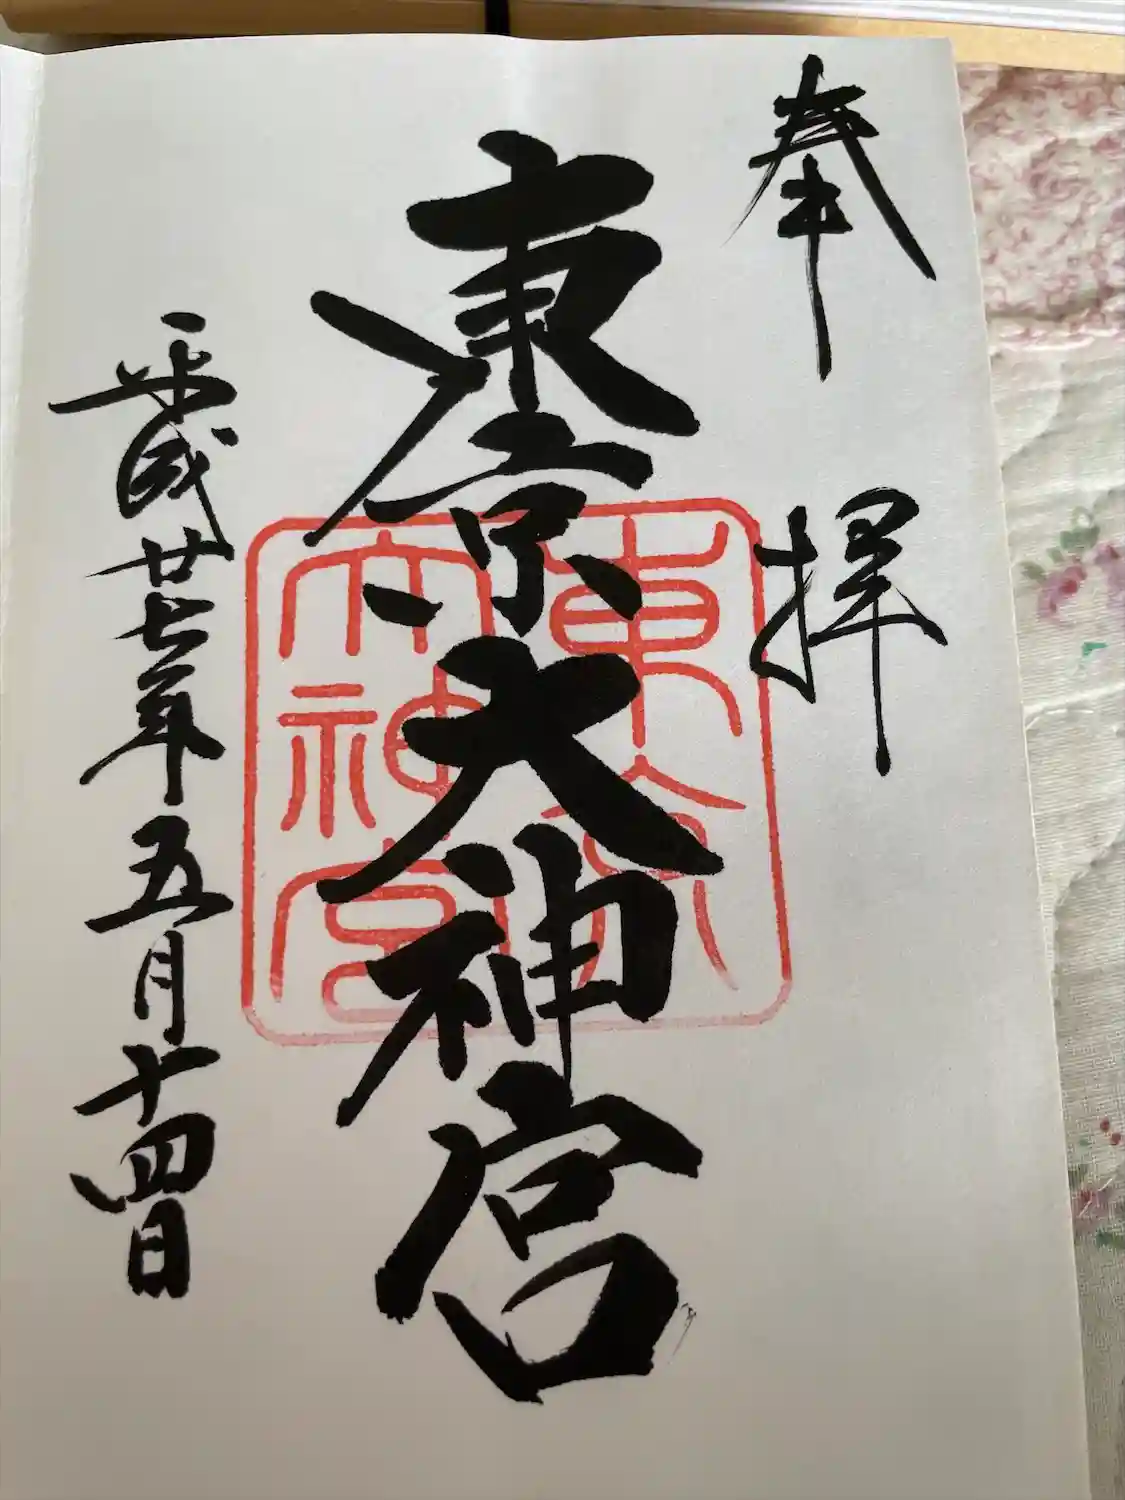 奉拝
東京大神宮
東京
大神宮
平成廿七年五月十四日